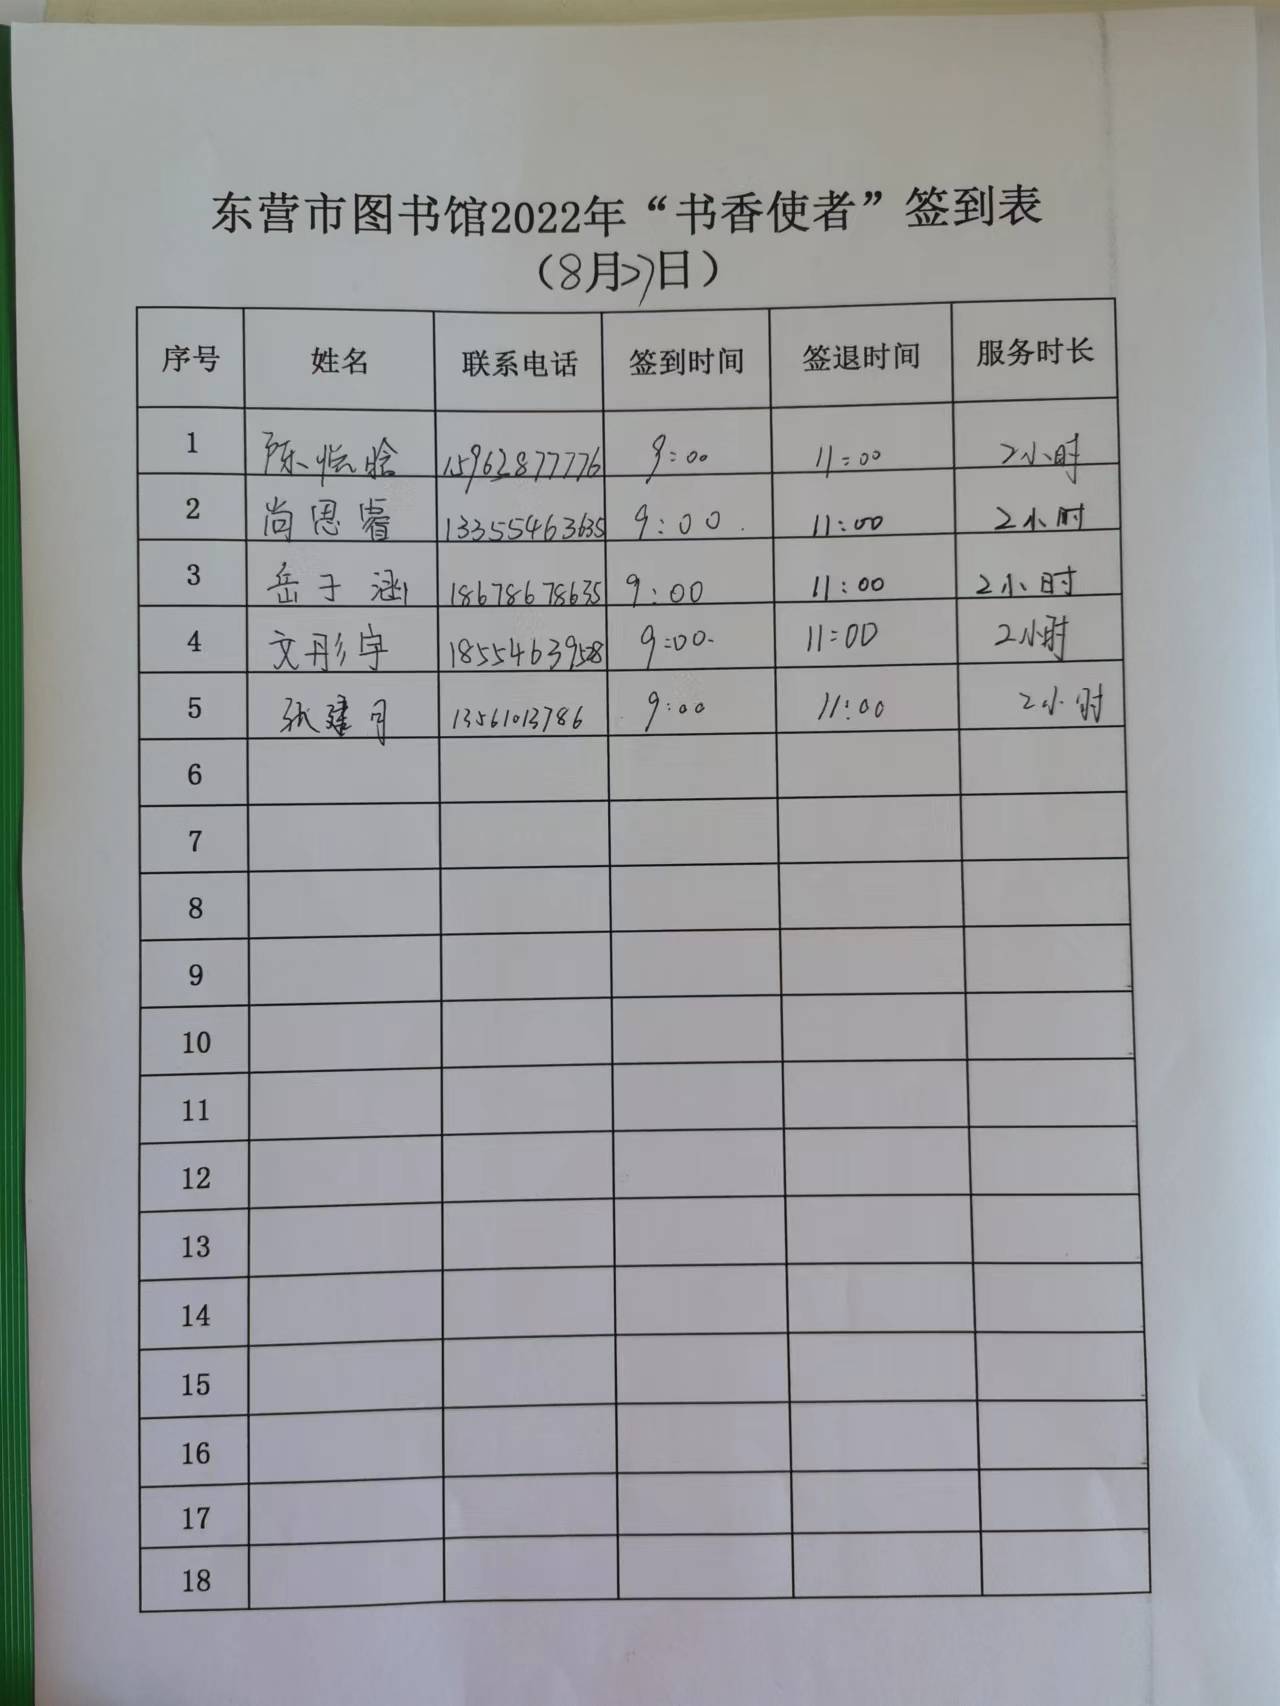 东营市图书馆2022年“书香使者”签到表
（8月27日）
序号 姓名 联系电话 签到时间 签退时间 服务时长
1 15962877776 9:00 11:00 2小时
2 尚恩睿 13355463635 9:00 11:00 2小时
3 岳于涵 18678678635 9:00 11:00 2小时
4 文彤宇 18554639528 9:00 11:00 2小时
5 张建月 13561013786 9:00 11:00 2小时
6
7
8
9
10
11
12
13
14
15
16
17
18